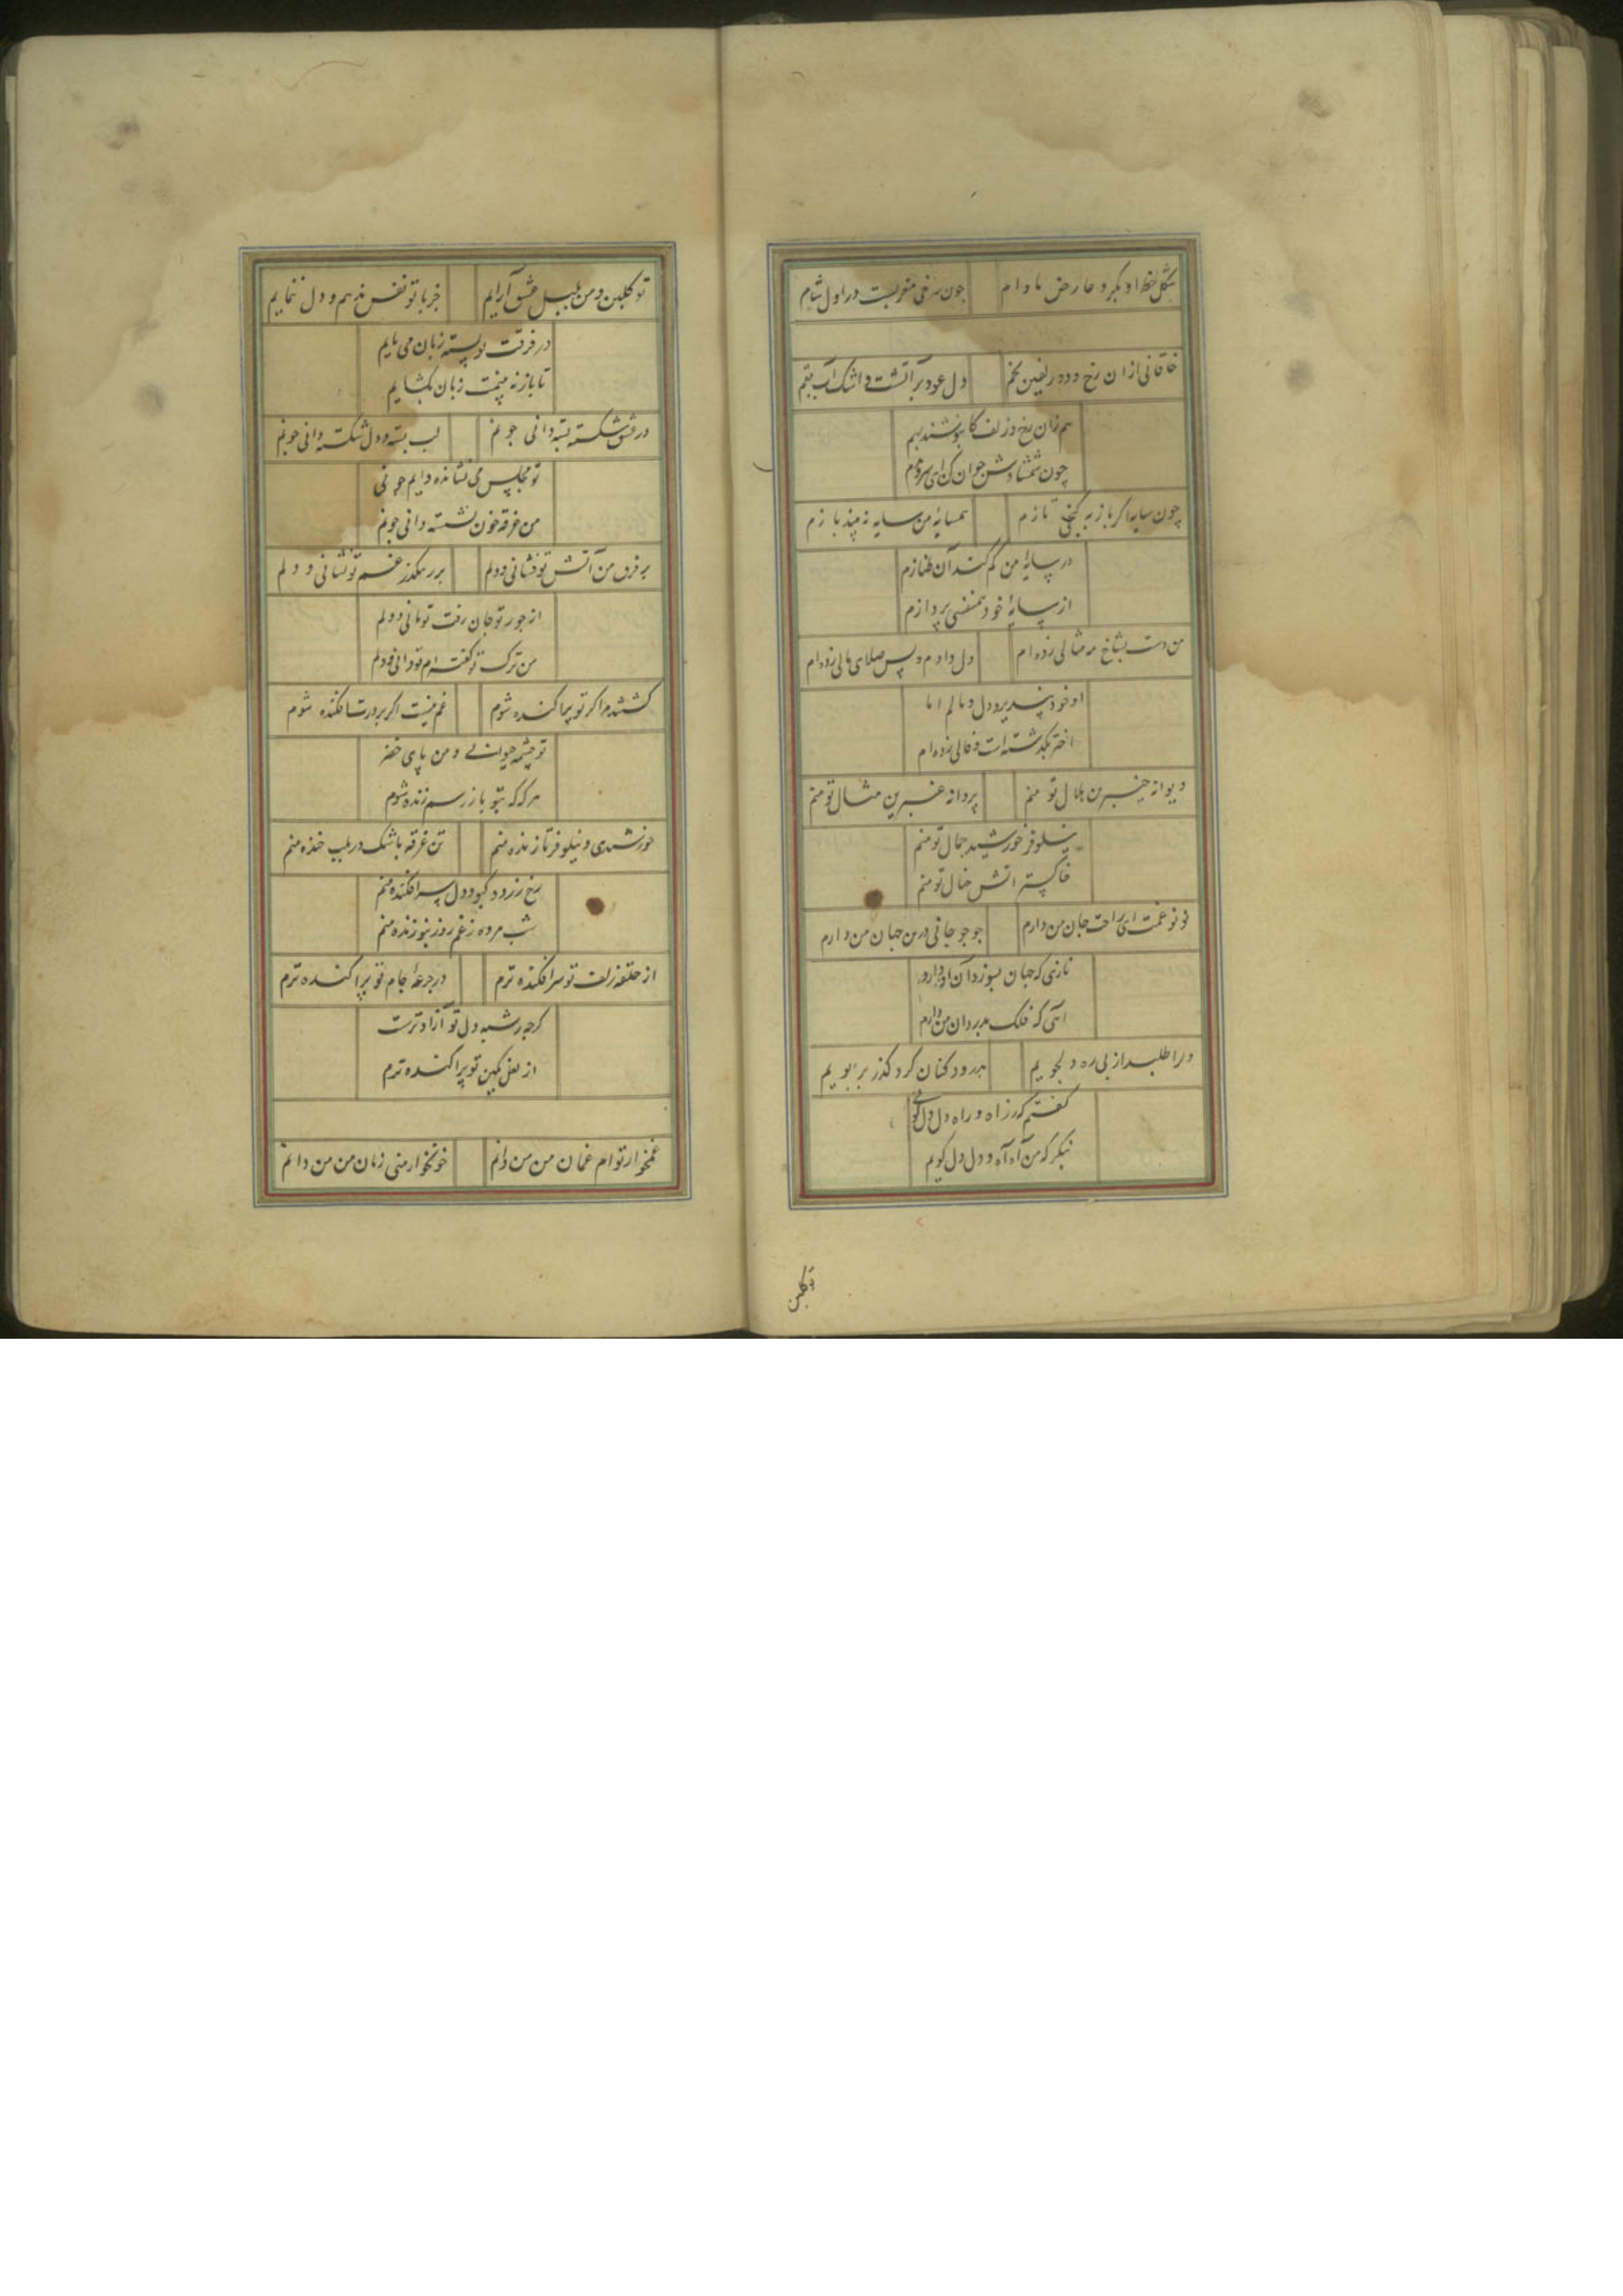 شکل خط او بکرد عارض مادام چون سرخی مغربیست در اول شام
خاقانی ازان رخ و دو زلفین بخم دل عود بر آتشت و اشک آب بقم
هم زان رخ و زلف کابنوشند بهم
چون شمشادش جوان کن ای سرو
چون سایه اگر باز به کنجی تازم همسایه من سایه نه بیند بازم
در سایه من کم کند آن طنازم
از سایه خود همنفسی پردازم
من دست بشاخ مه مثالی زده‌ام دل دادم و پس صلای مالی زده‌ام
او خود نپذیرد دل و مالم اما
اختر بگذشتست و فالی زده‌ام
دیوانه چنبرین هلال تو منم پروانه عنبرین مثال تو منم
نیلوفر خورشید جمال تو منم
خاکستر آتش خیال تو منم
نونو غمت ای راحت جان من دارم جوجو جانی درین جهان من دارم
نازی که جهان بسوزد آن او دارد
آهی که فلک بدرد آن من دارم
درا طلبد از پی ره دلجویم بدرود کنان کرد گذر بر بویم
گفتم که ز راه و راه دل دل کوی
بنکر که من آه آه و دل دل گویم
تو گلبن
تو گلبن و من بلبل عشق آرایم جز با تو نفس ندهم و دل ننمایم
در فرقت تو بسته زبان می‌ بایم
تا باز نه بینمت زبان بگشایم
در عشق شکسته بسته دانی چونم لب بسته و دل شکسته دانی چونم
تو مجلس می نشانده دایم چونی
من غرقه خون نشسته دانی چونم
بر فرق من آتش تو فشانی و دلم بر رهگذر غم تو نشانی و دلم
از جور تو جان رفت تو مانی و دلم
من ترک تو گفته‌ام تو دانی و دلم
کشتند مرا کز تو پراکنده شوم غم نیست اگر بر درت افکنده شوم
تو چشمه حیوانی و من پای خضر
هر گه که بتو باز رسم زنده شوم
خورشیدی و نیلوفر تازنده منم تن غرقه باشک در بلب خنده منم
رخ زرد و کبود دل سرافکنده منم
شب مرده ز غم روز بتو زنده منم
از حلقه زلف تو سرافکنده ترم در جرعه جام تو پراکنده ترم
گرچه ز شبه دل تو آزاد ترست
از لعل نگین تو پراکنده ترم
غمخوار توام غمان من من دانم خونخوار منی زمان من من دانم